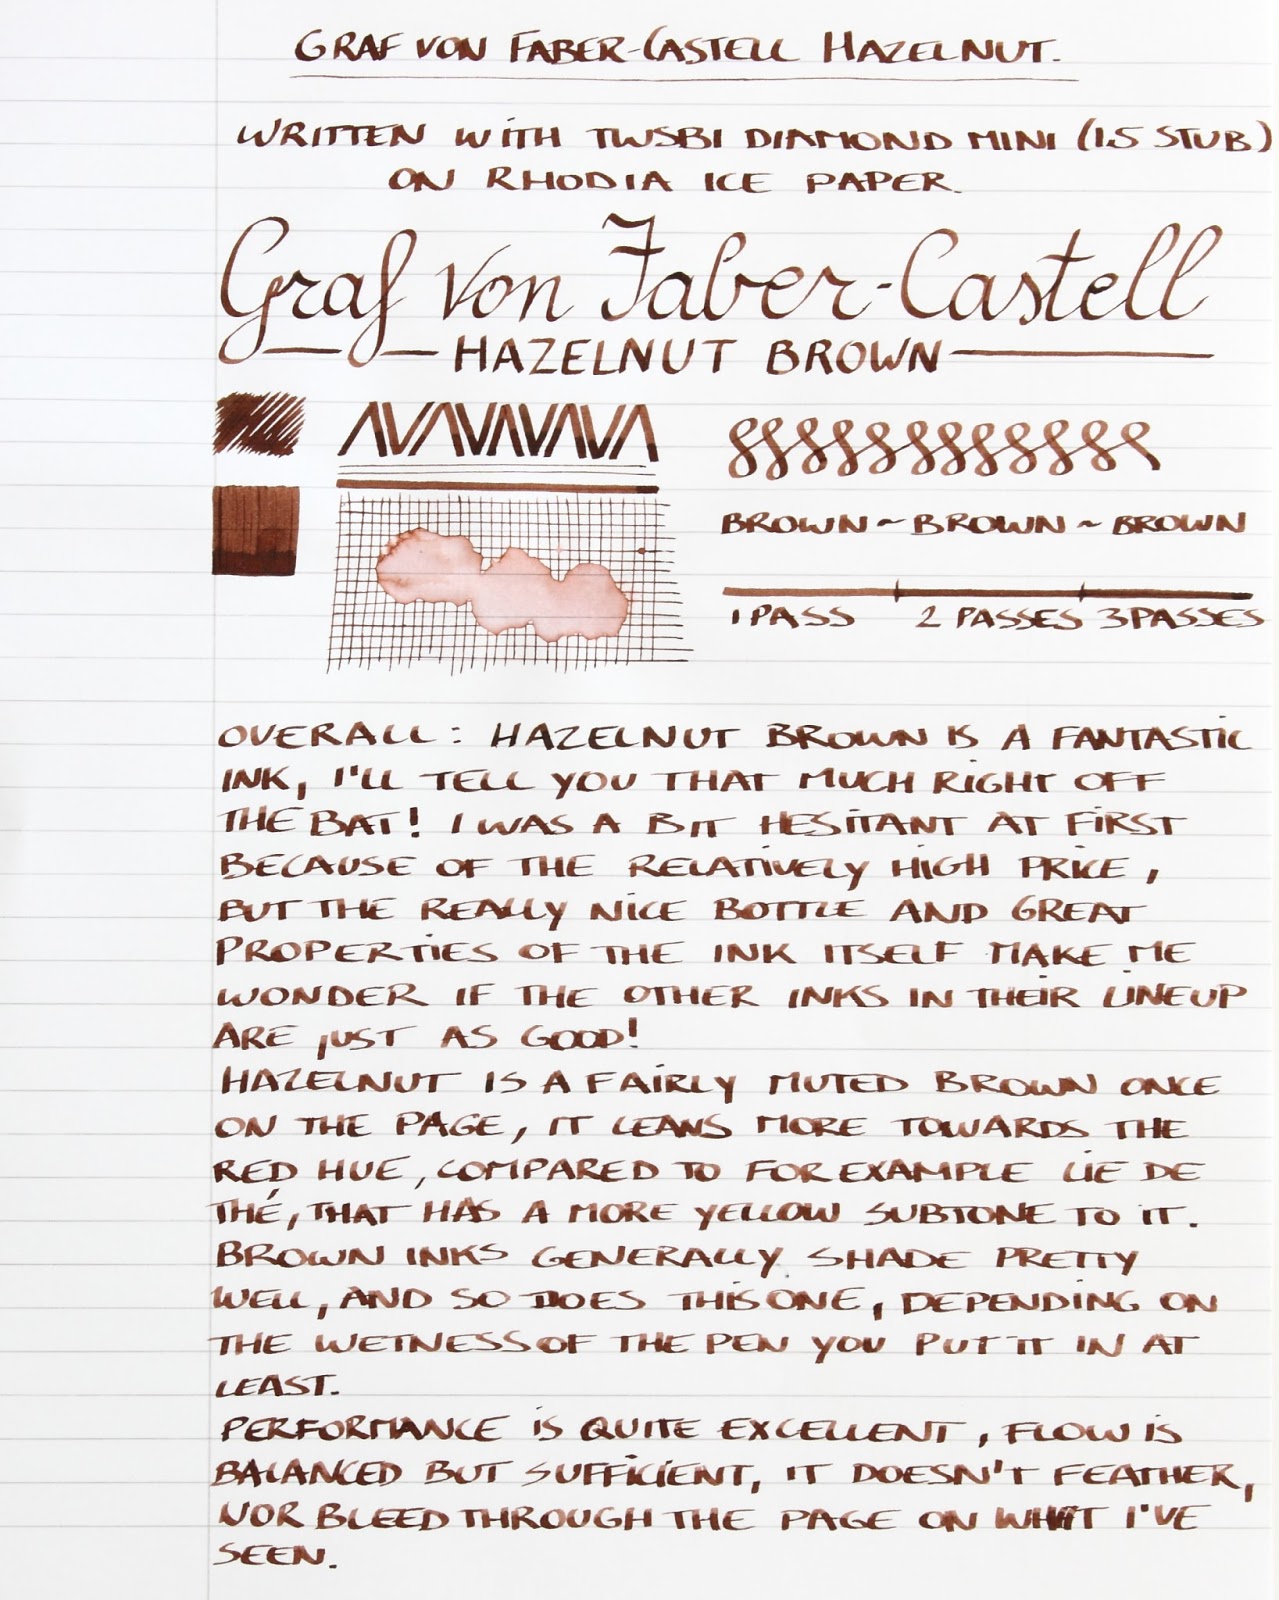 GRAF VON FABER-CASTELL HAZELNUT.
WRITTEN WITH TWSBI DIAMOND MINI (1.5 STUB)
ON RHODIA ICE PAPER.
Graf von Faber-Castell
HAZELNUT BROWN
BROWN ~ BROWN ~ BROWN
1 PASS 2 PASSES 3 PASSES
OVERALL: HAZELNUT BROWN IS A FANTASTIC
INK, I'LL TELL YOU THAT MUCH RIGHT OFF
THE BAT! I WAS A BIT HESITANT AT FIRST
BECAUSE OF THE RELATIVELY HIGH PRICE,
BUT THE REALLY NICE BOTTLE AND GREAT
PROPERTIES OF THE INK ITSELF MAKE ME
WONDER IF THE OTHER INKS IN THEIR LINEUP
ARE JUST AS GOOD!
HAZELNUT IS A FAIRLY MUTED BROWN ONCE
ON THE PAGE, IT LEANS MORE TOWARDS THE
RED HUE, COMPARED TO FOR EXAMPLE LIE DE
THÉ, THAT HAS A MORE YELLOW SUBTONE TO IT.
BROWN INKS GENERALLY SHADE PRETTY
WELL, AND SO DOES THIS ONE, DEPENDING ON
THE WETNESS OF THE PEN YOU PUT IT IN AT
LEAST.
PERFORMANCE IS QUITE EXCELLENT, FLOW IS
BALANCED BUT SUFFICIENT, IT DOESN'T FEATHER,
NOR BLEED THROUGH THE PAGE ON WHAT I'VE
SEEN.